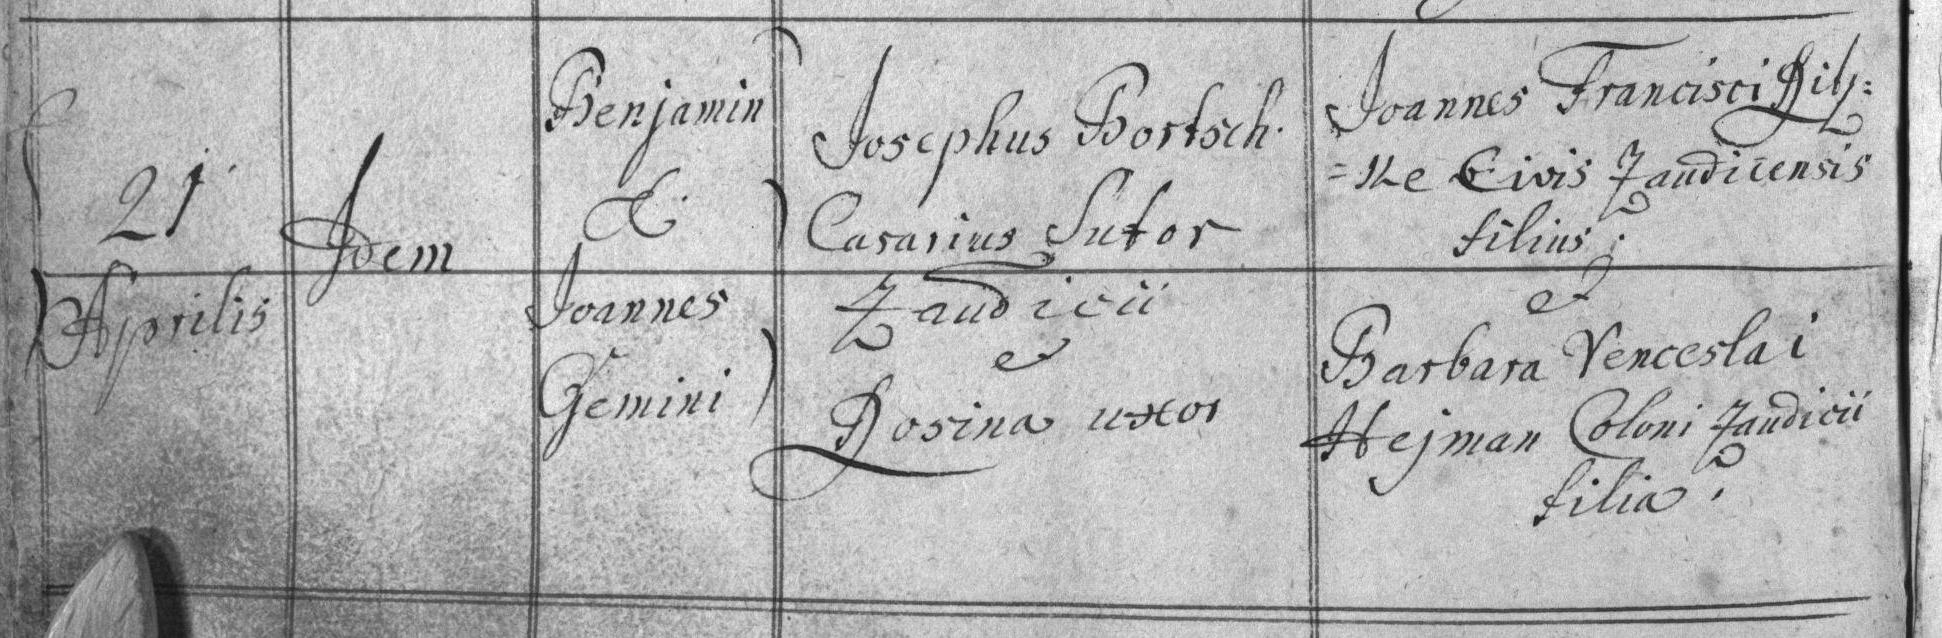 21
Aprilis
Idem
Benjamin
&
Joannes
Gemini
Josephus Bortsch.
Casarius Sutor
Zaudicii
et
Rosina uxor
Joannes Francisci
=ke Civis Zaudicensis
filius;
et
Barbara Venceslai
Hejman Coloni Zaudicii
filia.